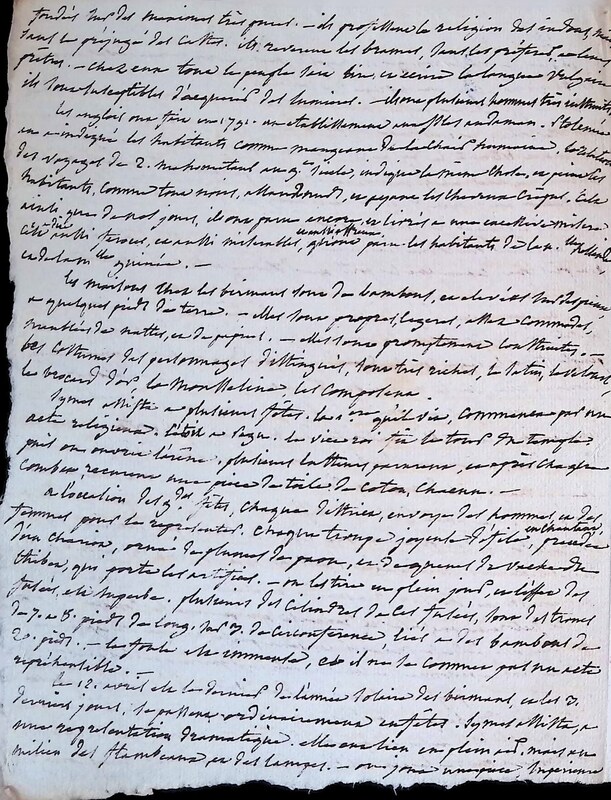 fondés sur des maximes très pures. – ils professent la religion des indous, mais
sans le préjugé des castes. ils reverent les brames, sans les préférer à leurs
prêtres. – chez eux tout le peuple sait lire, et écrire la langue vulgaire
ils sont susceptibles d'acquérir des lumières. – ils ont plusieurs hommes très instruits
les anglois ont fixé en 1791. un établissement aux isles andaman. Ptolemée
en a indiqué les habitants comme mangeurs de la chair humaine. la relation
des voyages de 2. mahometans au 9e siecle, indique la même chose, et peint les
habitants, comme tous noirs, allant nuds, et ayant les cheveux crépus.
ainsi que de nos jours, ils ont paru encore, et livrés à une excessive misere
aussi feroces, et aussi miserables, qu'ont paru les habitants de la n. hollande
et de la nlle guinée. –
les maisons chez les birmans sont de bambous, et elevées sur des pieux
a quelques pieds de terre. – elles sont propres, legeres, assez commodes,
meublées de nattes, et de papiers. – elles sont promptement construites.
les costumes des personnages distingués, sont très riches, le satin, le velours,
le brocard d'or, la mousseline les composent.
Symes assista a plusieurs fêtes. la 1ere qu'il vit, commença par un
acte religieux. c'était a Pegu. le vice roi fit le tour du temple
puis on ouvrit l'arène. plusieurs lutteurs parurent, et après chaque
combat reçurent une pièce de toile de coton, chacun. –
a l'occasion des gdes fêtes, chaque district, envoye des hommes, et des
femmes, pour le representer. chaque troupe joyeuse défile, en chantant, précédée
d'un chariot, orné de plumes de paon, et de queues de vaches du
thibet, qui porte les artifices. – on les tire en plein jour, et l'effet des
fusées, est superbe. plusieurs des cilindres de ces fusées, sont des troncs
de 7. a 8. pieds de long, sur 3. de circonference, liés a des bambous de
20 pieds. – la foule est immense, et il ne se commet pas un acte
repréhensible.
le 12. avril est le dernier de l'année solaire des birmans, et les 3.
derniers jours, se passent ordinairement en fêtes. Symes assista, a
une representation dramatique. elle eut lieu en plein air, mais au
milieu des flambeaux, et des lampes. – on joua une pièce, ingenieuse